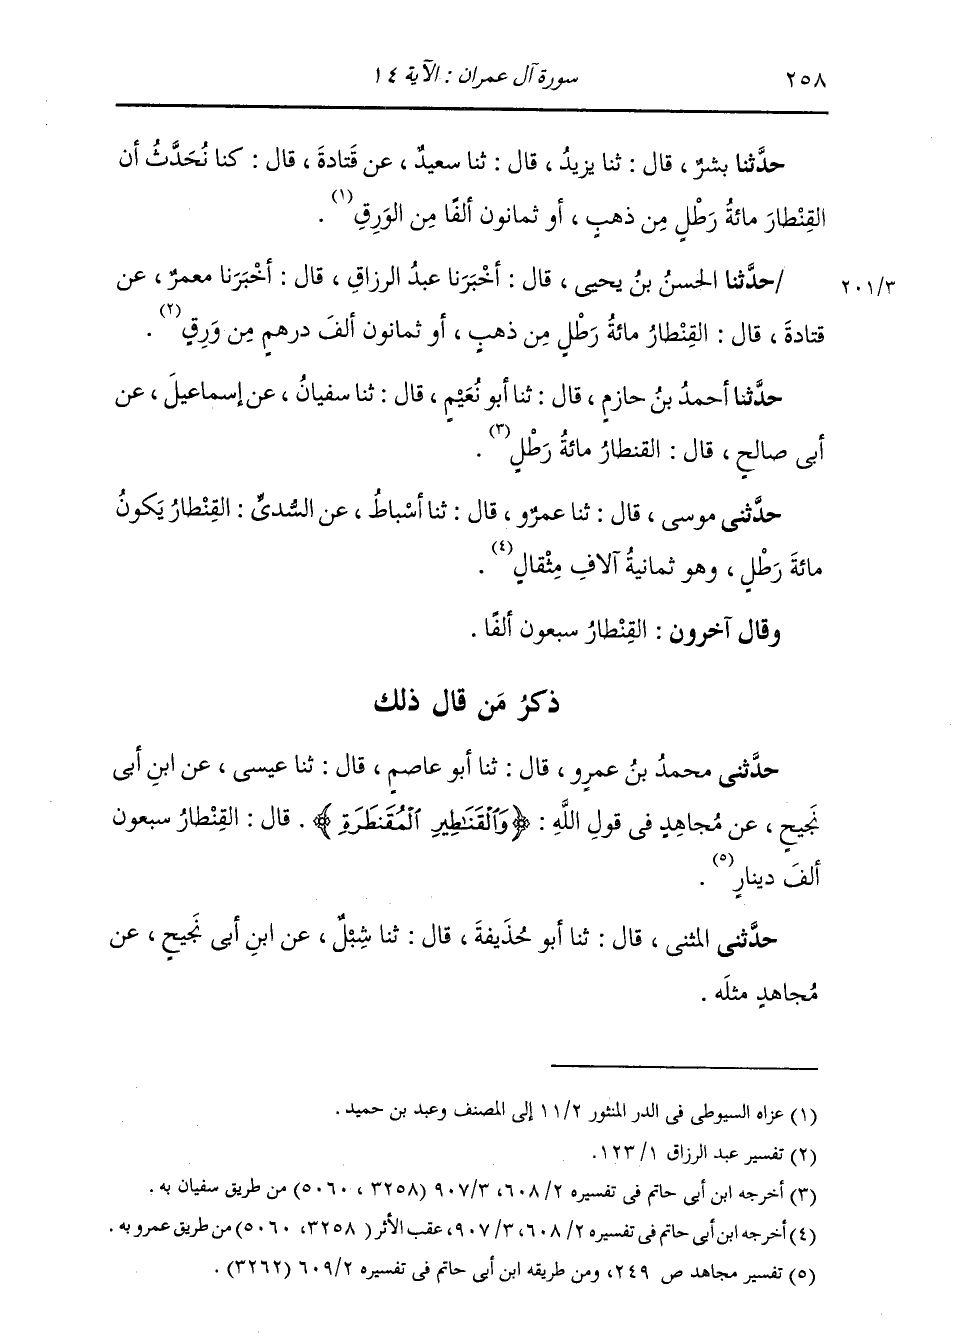 ٢٥٨ سورة آل عمران : الآية ١٤
حدَّثنا بشرٌ ، قال : ثنا يزيدُ ، قال : ثنا سعيدٌ ، عن قَتادةَ ، قال : كنا نُحَدَّثُ أن
القِنْطارَ مائةُ رَطْلٍ مِن ذهبٍ ، أو ثمانون ألفًا مِن الوَرِقِ(١) .
٢٠١/٣ /حدَّثنا الحسنُ بنُ يحيى ، قال : أخْبَرَنا عبدُ الرزاقِ ، قال : أخْبَرَنا معمرٌ ، عن
قتادةَ ، قال : القِنْطارُ مائةُ رَطْلٍ مِن ذهبٍ ، أو ثمانون ألفَ درهمٍ مِن وَرِقٍ(٢) .
حدَّثنا أحمدُ بنُ حازمٍ ، قال : ثنا أبو نُعَيْمٍ ، قال : ثنا سفيانُ ، عن إسماعيلَ ، عن
أبى صالحٍ ، قال : القنطارُ مائةُ رَطْلٍ(٣) .
حدَّثنى موسى ، قال : ثنا عمرٌو ، قال : ثنا أسْباطُ ، عن السُّدىِّ : القِنْطارُ يَكونُ
مائةَ رَطْلٍ ، وهو ثمانيةُ آلافِ مِثْقالٍ(٤) .
وقال آخرون : القِنْطارُ سبعون ألفًا .
ذكرُ مَن قال ذلك
حدَّثنى محمدُ بنُ عمرٍو ، قال : ثنا أبو عاصمٍ ، قال : ثنا عيسى ، عن ابنِ أبى
نَجيحٍ ، عن مُجاهدٍ فى قولِ اللَّهِ : ﴿وَٱلْقَنَٰطِيرِ ٱلْمُقَنطَرَةِ﴾ . قال : القِنْطارُ سبعون
ألفَ دينارٍ(٥) .
حدَّثنى المثنى ، قال : ثنا أبو حُذَيفةَ ، قال : ثنا شِبْلٌ ، عن ابنِ أبى نَجيحٍ ، عن
مُجاهدٍ مثلَه .
(١) عزاه السيوطى فى الدر المنثور ١١/٢ إلى المصنف وعبد بن حميد .
(٢) تفسير عبد الرزاق ١/ ١٢٣.
(٣) أخرجه ابن أبى حاتم فى تفسيره ٢/ ٦٠٨، ٩٠٧/٣ (٣٢٥٨ ، ٥٠٦٠) من طريق سفيان به .
(٤) أخرجه ابن أبى حاتم فى تفسيره ٢/ ٦٠٨، ٣/ ٩٠٧، عقب الأثر ( ٣٢٥٨، ٥٠٦٠) من طريق عمرو به .
(٥) تفسير مجاهد ص ٢٤٩، ومن طريقه ابن أبى حاتم فى تفسيره ٦٠٩/٢ (٣٢٦٢) .